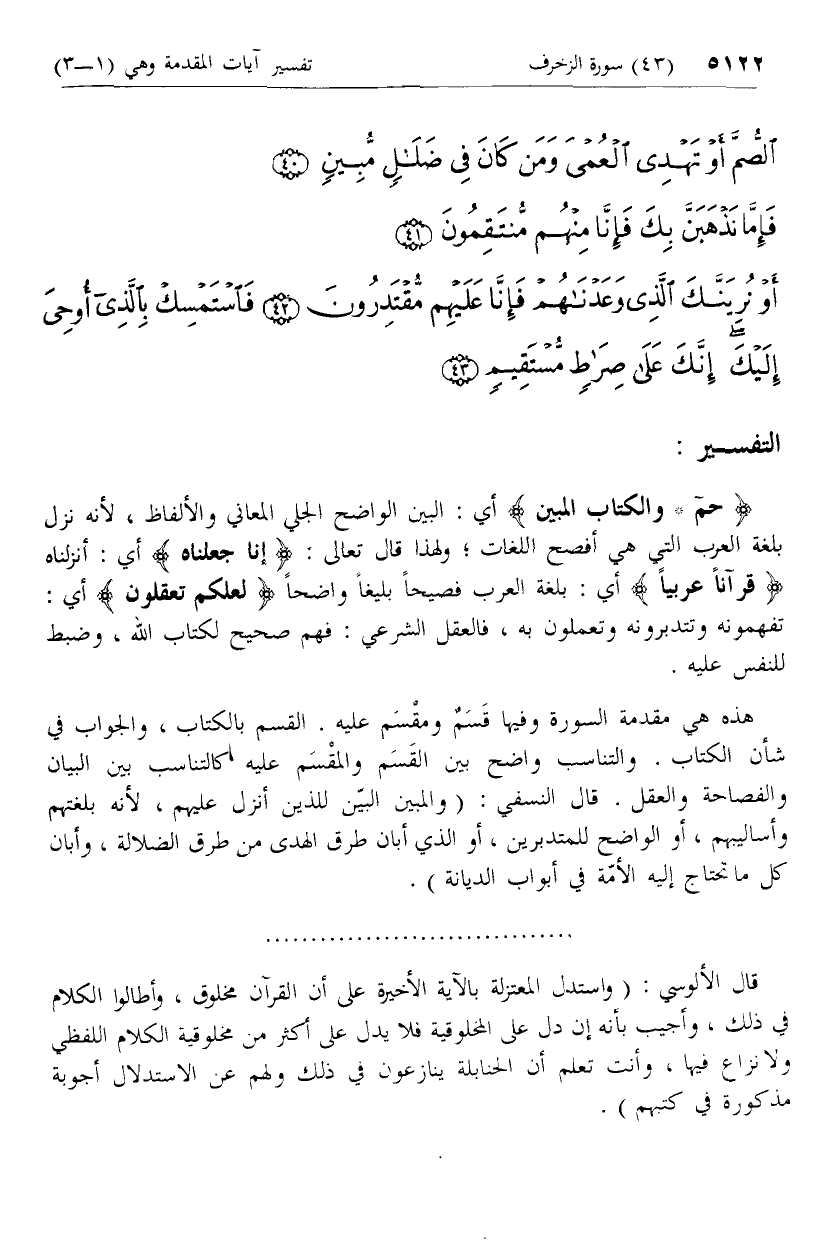 ٥١٢٢ (٤٣) سورة الزخرف تفسير آيات المقدمة وهي (١—٣)
ٱلصُّمَّ أَوْ تَهْدِى ٱلْعُمْىَ وَمَن كَانَ فِى ضَلَـٰلٍ مُّبِينٍ ﴿٤٠﴾
فَإِمَّا نَذْهَبَنَّ بِكَ فَإِنَّا مِنْهُم مُّنتَقِمُونَ ﴿٤١﴾
أَوْ نُرِيَنَّكَ ٱلَّذِى وَعَدْنَـٰهُمْ فَإِنَّا عَلَيْهِم مُّقْتَدِرُونَ ﴿٤٢﴾ فَٱسْتَمْسِكْ بِٱلَّذِىٓ أُوحِىَ
إِلَيْكَ ۖ إِنَّكَ عَلَىٰ صِرَٰطٍ مُّسْتَقِيمٍ ﴿٤٣﴾
التفسـير :
﴿ حمٓ * والكتاب المبين ﴾ أي : البين الواضح الجلي المعاني والألفاظ ، لأنه نزل
بلغة العرب التي هي أفصح اللغات ؛ ولهذا قال تعالى : ﴿ إنا جعلناه ﴾ أي : أنزلناه
﴿ قرآناً عربياً ﴾ أي : بلغة العرب فصيحاً بليغاً واضحاً ﴿ لعلكم تعقلون ﴾ أي :
تفهمونه وتتدبرونه وتعملون به ، فالعقل الشرعي : فهم صحيح لكتاب الله ، وضبط
للنفس عليه .
هذه هي مقدمة السورة وفيها قَسَمٌ ومقْسَم عليه . القسم بالكتاب ، والجواب في
شأن الكتاب . والتناسب واضح بين القَسَم والمقْسَم عليه كالتناسب بين البيان
والفصاحة والعقل . قال النسفي : ( والمبين البيّن للذين أنزل عليهم ، لأنه بلغتهم
وأساليبهم ، أو الواضح للمتدبرين ، أو الذي أبان طرق الهدى من طرق الضلالة ، وأبان
كل ما تحتاج إليه الأمّة في أبواب الديانة ) .
..................................
قال الألوسي : ( واستدل المعتزلة بالآية الأخيرة على أن القرآن مخلوق ، وأطالوا الكلام
في ذلك ، وأجيب بأنه إن دل على المخلوقية فلا يدل على أكثر من مخلوقية الكلام اللفظي
ولا نزاع فيها ، وأنت تعلم أن الحنابلة ينازعون في ذلك ولهم عن الاستدلال أجوبة
مذكورة في كتبهم ) .